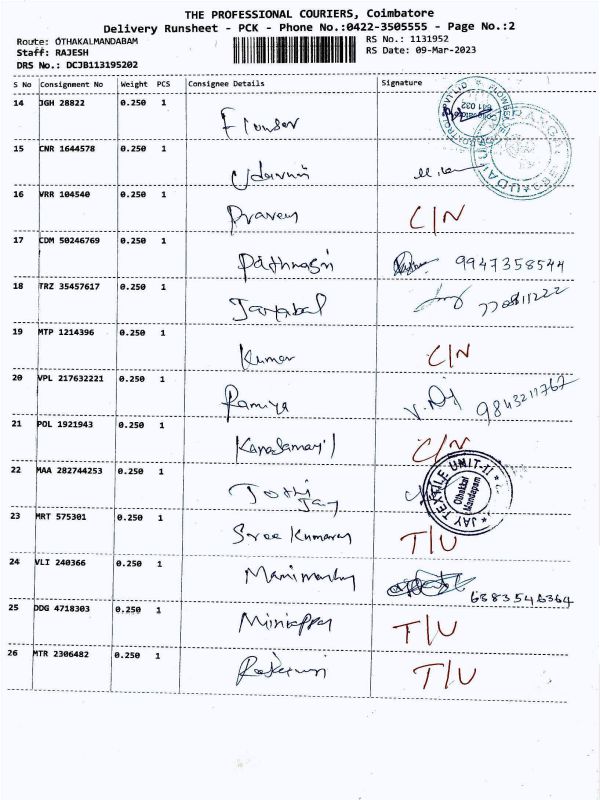 THE PROFESSIONAL COURIERS, Coimbatore
Delivery Runsheet - PCK - Phone No.:0422-3505555 - Page No.:2
Route: OTHAKALMANDABAM RS No.: 1131952
Staff: RAJESH RS Date: 09-Mar-2023
DRS No.: DCJB113195202
S No Consignment No Weight PCS Consignee Details Signature
14 JGH 28822 0.250 1
15 CNR 1644578 0.250 1
16 VRR 104540 0.250 1
Praveen C/N
17 CDM 50246769 0.250 1
9947358544
18 TRZ 35457617 0.250 1
19 MTP 1214396 0.250 1
Kumar C/N
20 VPL 217632221 0.250 1
Ramiya 9843211767
21 POL 1921943 0.250 1
C/N
22 MAA 282744253 0.250 1
Jothi Jay JAY TEXTILE UNIT-II Othakkal Mandapam
23 MRT 575301 0.250 1
Sree Kumaran T/U
24 VLI 240366 0.250 1
6383546364
25 DDG 4718303 0.250 1
T/U
26 MTR 2306482 0.250 1
T/U